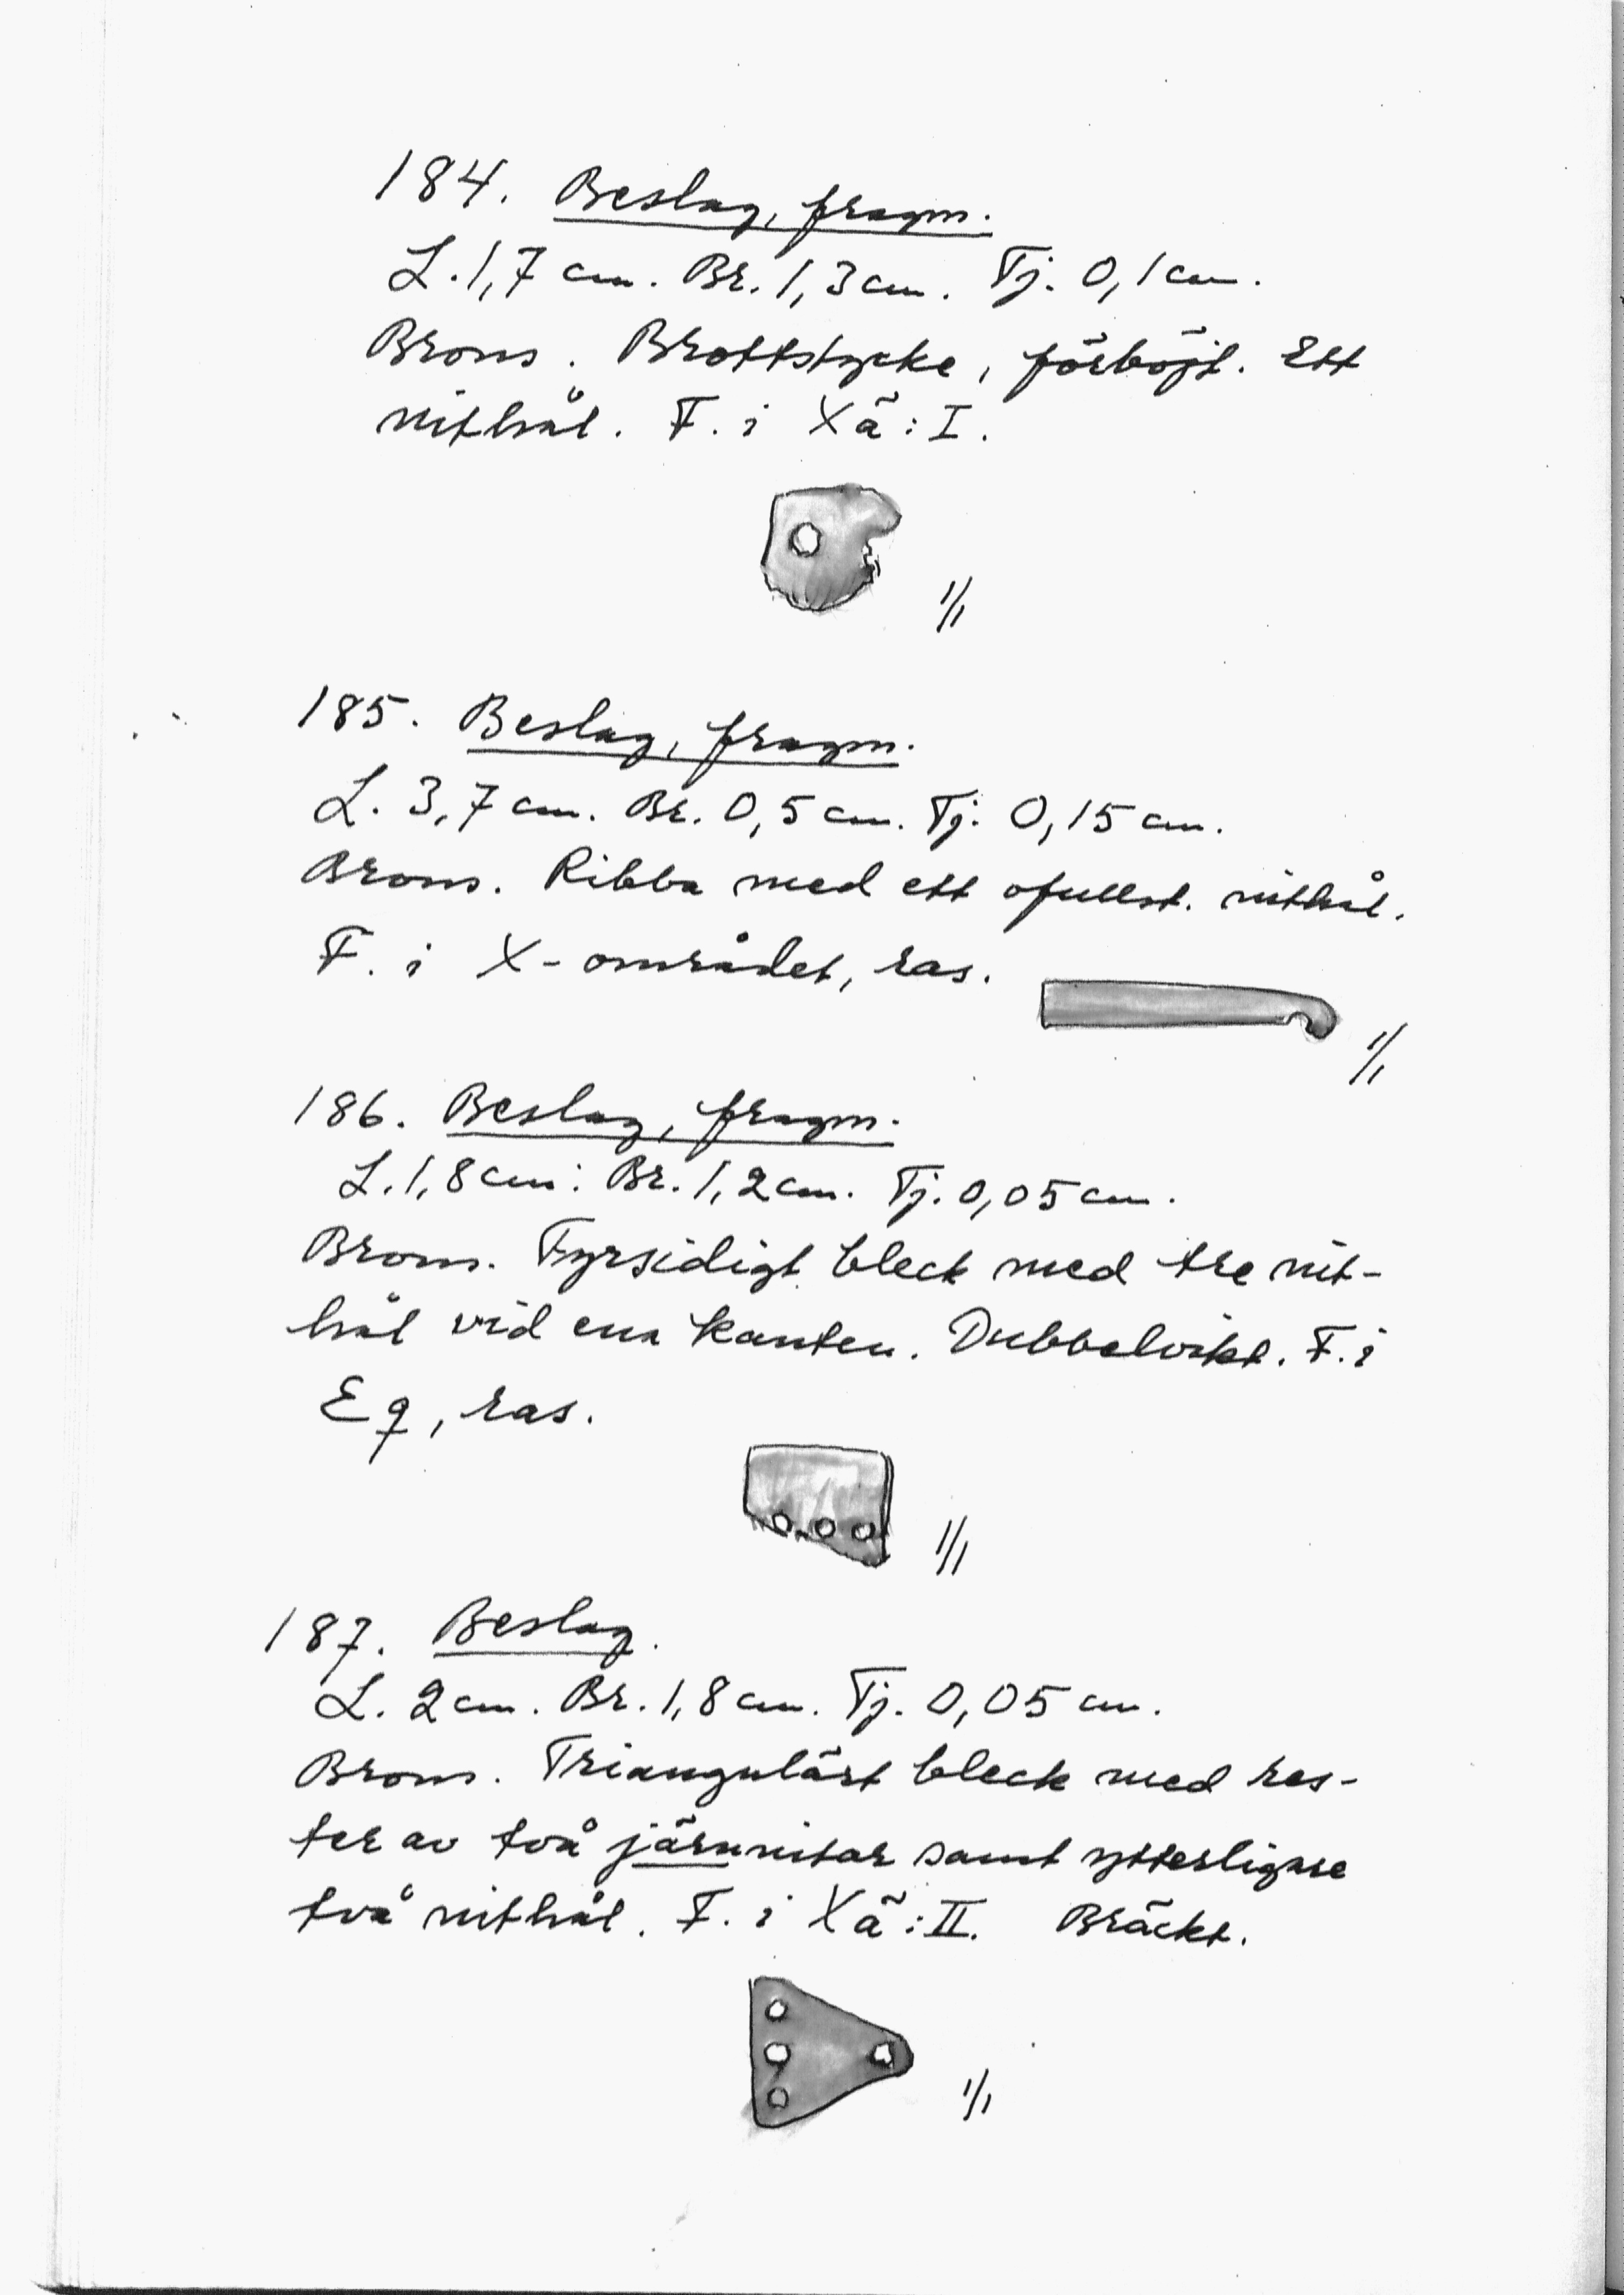 184. Beslag, fragm.
L. 1,7 cm. Br. 1,3 cm. Tj. 0,1 cm.
Brons. Brottstycke, förböjt. Ett
nithål. F. i Xä: I.
1/1
185. Beslag, fragm.
L. 3,7 cm. Br. 0,5 cm. Tj. 0,15 cm.
Brons. Ribba med ett ofullst. nithål.
F. i X-området, ras.
1/1
186. Beslag, fragm.
L. 1,8 cm. Br. 1,2 cm. Tj. 0,05 cm.
Brons. Fyrsidigt bleck med tre nit-
hål vid ena kanten. Dubbelvikt. F. i
Eq, ras.
1/1
187. Beslag.
L. 2 cm. Br. 1,8 cm. Tj. 0,05 cm.
Brons. Triangulärt bleck med res-
ter av två järnnitar samt ytterligare
två nithål. F. i Xä: II. Bräckt.
1/1